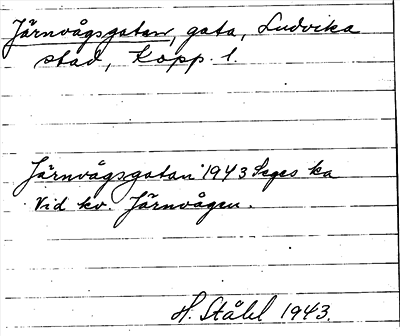 Järnvågsgatan, gata, Ludvika
stad, Kopp. l.
Järnvågsgatan 1943 Seges ha
Vid kv. Järnvågen.
H. Ståhl 1943.